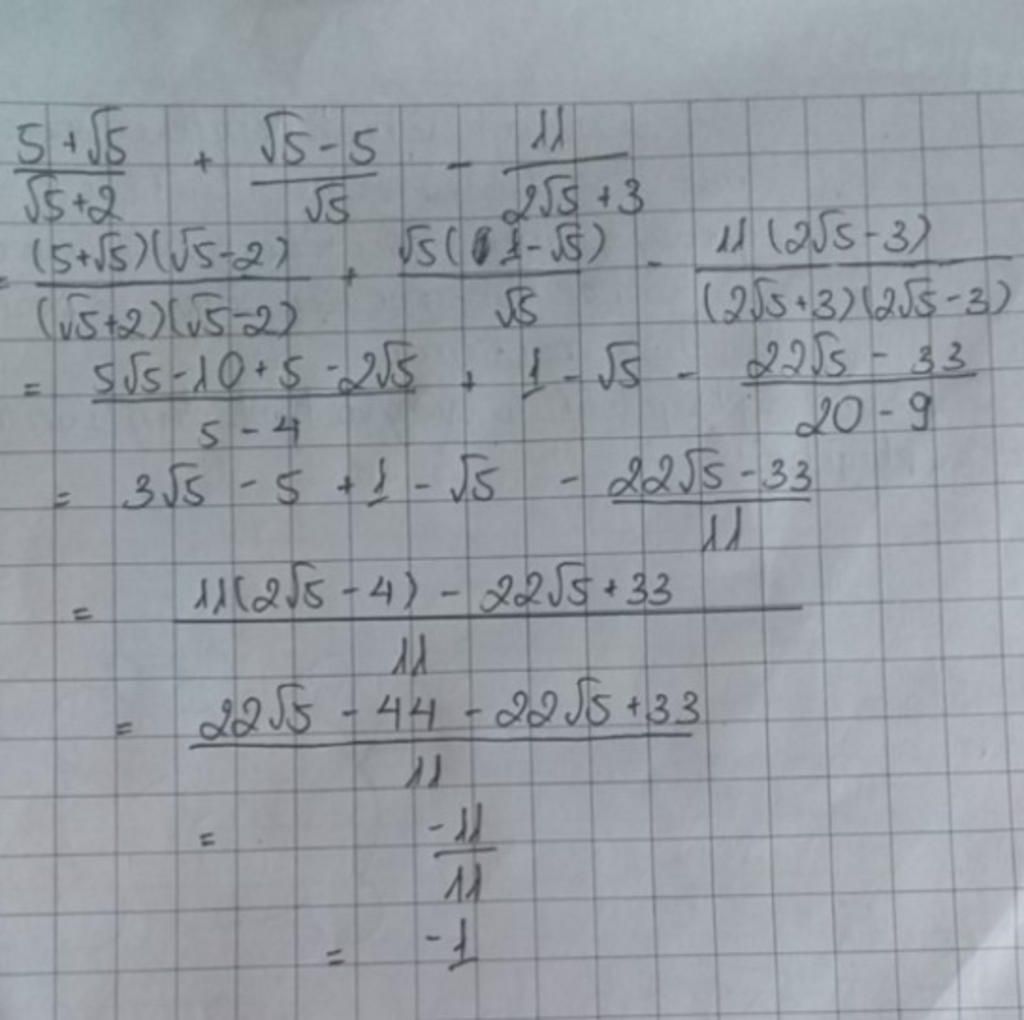 (5+√5)/(√5+2) + (√5-5)/√5 - 11/(2√5+3)
= (5+√5)(√5-2)/(√5+2)(√5-2) + √5(1-√5)/√5 - 11(2√5-3)/(2√5+3)(2√5-3)
= (5√5-10+5-2√5)/(5-4) + 1-√5 - (22√5-33)/(20-9)
= 3√5-5+1-√5 - (22√5-33)/11
= (11(2√5-4)-22√5+33)/11
= (22√5-44-22√5+33)/11
= -11/11
= -1